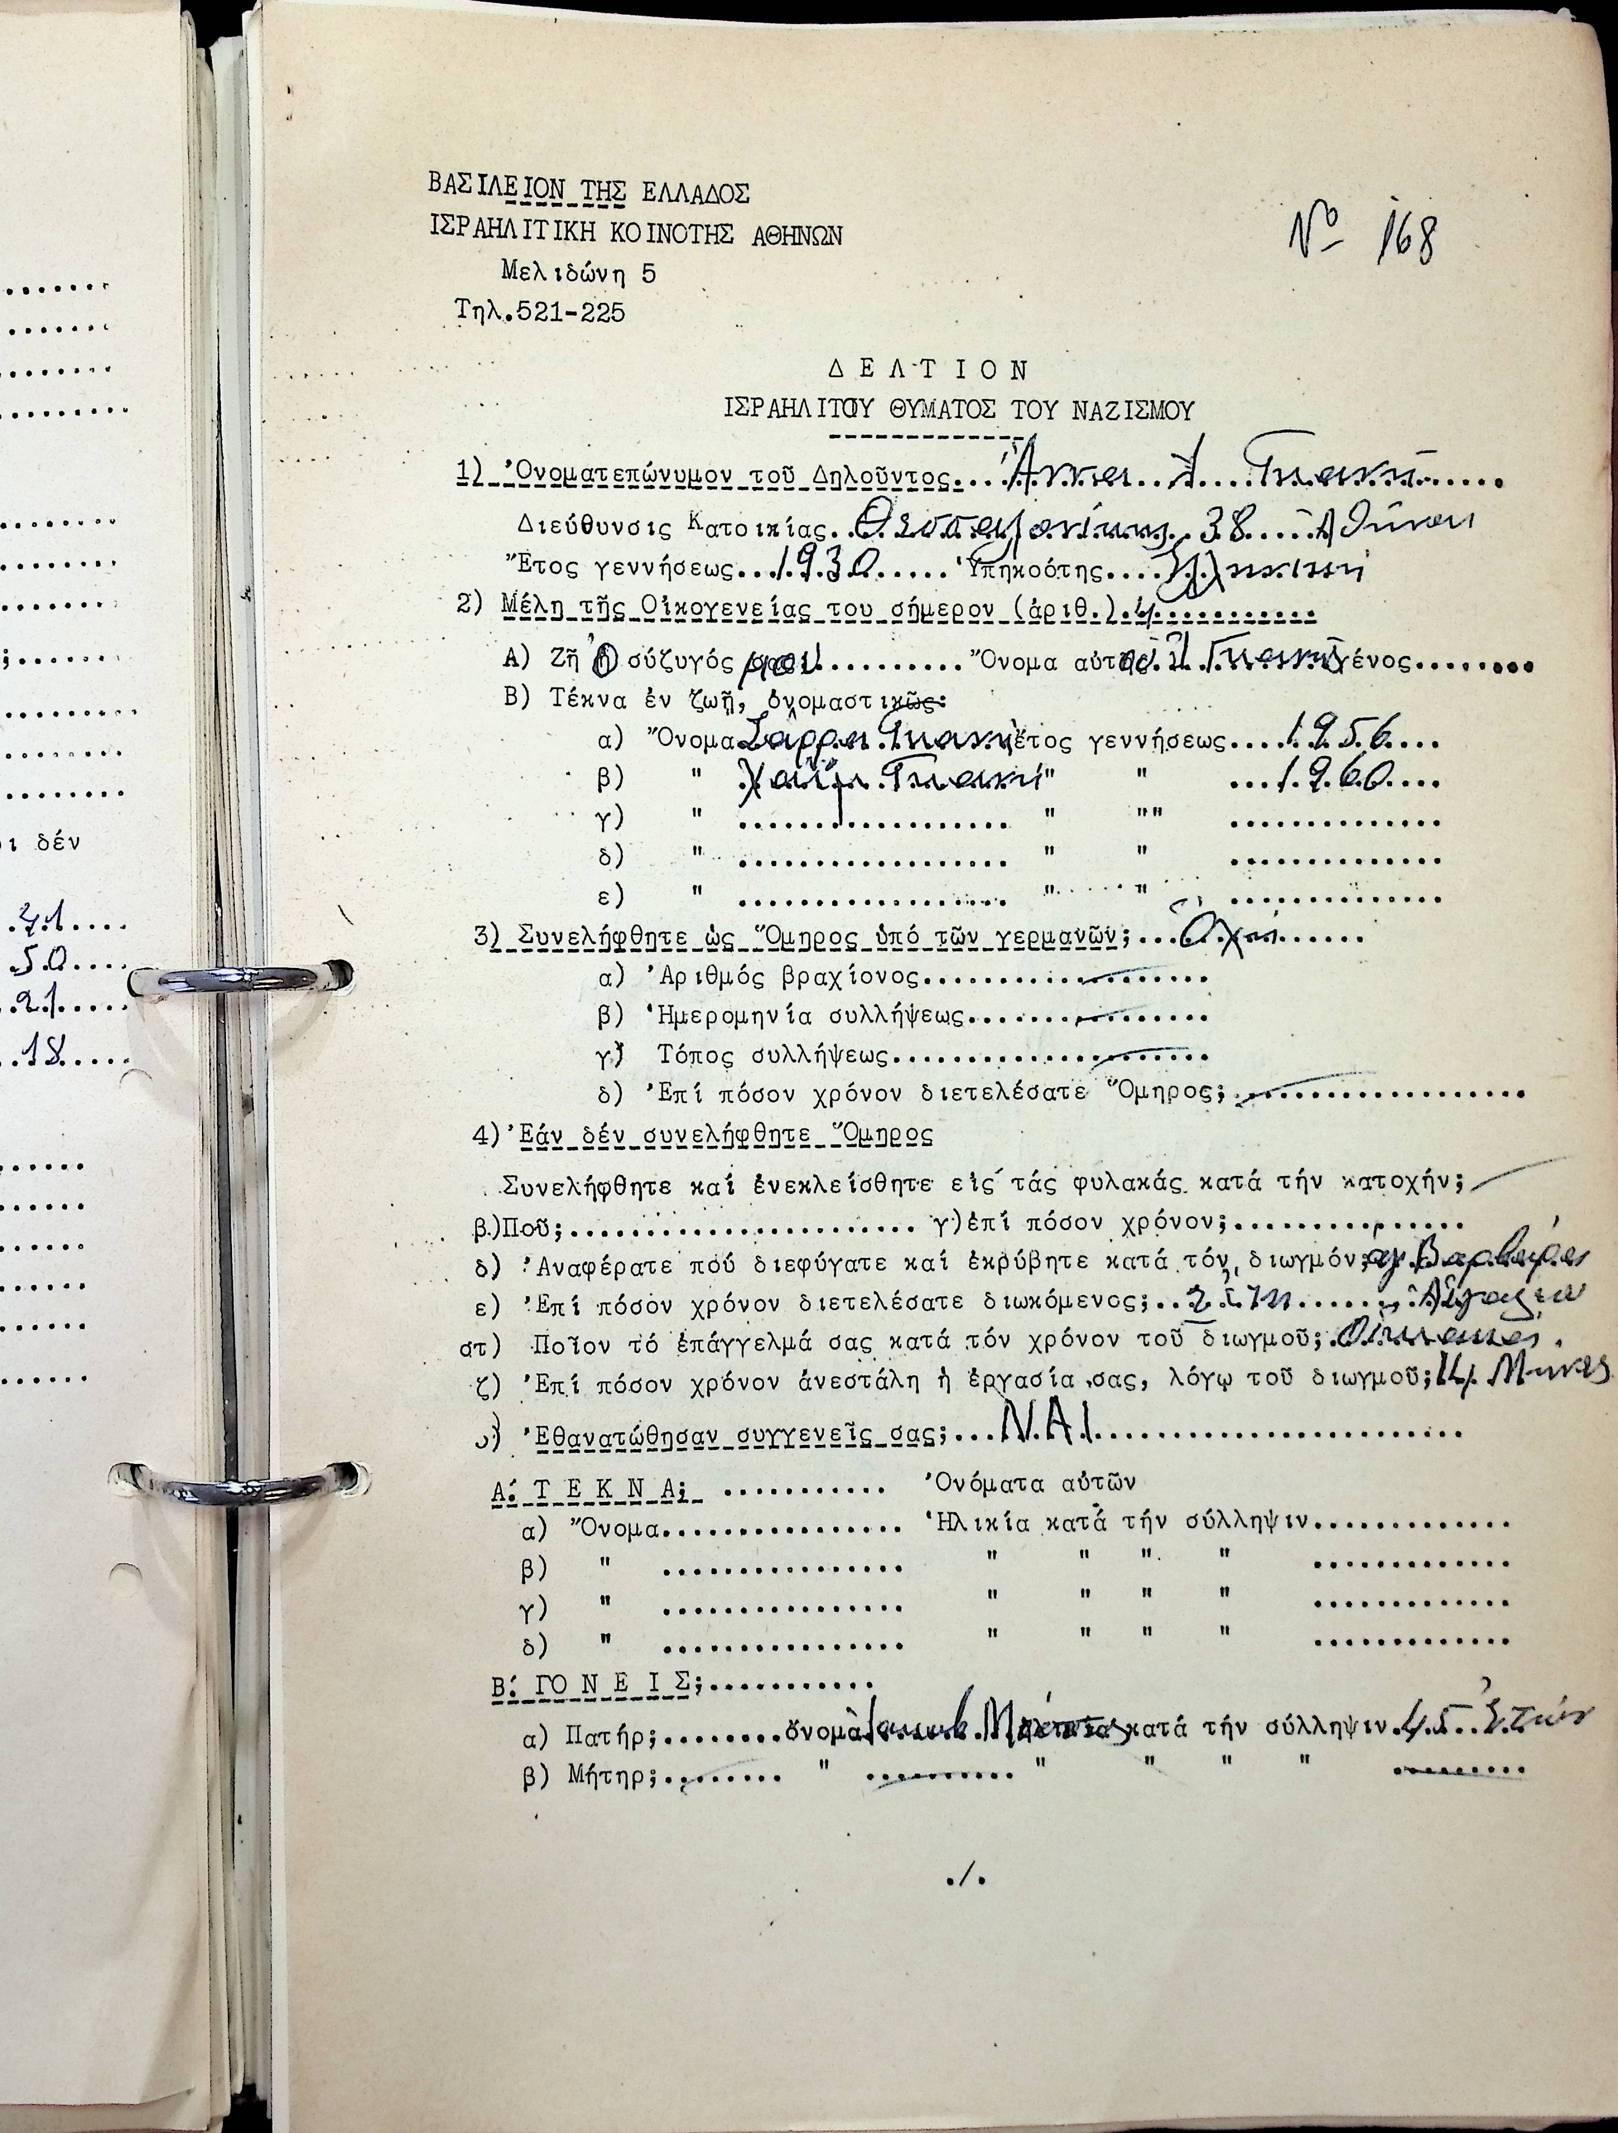 ι δέν
21
50
21
18
ΒΑΣΙΛΕΙΟΝ ΤΗΣ ΕΛΛΑΔΟΣ
ΙΣΡΑΗΛΙΤΙΚΗ ΚΟΙΝΟΤΗΣ ΑΘΗΝΩΝ
Νο 168
Μελιδώνη 5
Τηλ.521-225
Δ Ε Λ Τ Ι Ο Ν
ΙΣΡΑΗΛΙΤΟΥ ΘΥΜΑΤΟΣ ΤΟΥ ΝΑΖΙΣΜΟΥ
1) Ὀνοματεπώνυμον τοῦ Δηλοῦντος.... Ἄννα
Διεύθυνσις Κατοικίας..Θεσσαλονίκης 38.....Ἀθῆναι
Ἔτος γεννήσεως...1930...... Ὑπηκοότης....Ἑλληνική
2) Μέλη τῆς Οἰκογενείας του σήμερον (ἀριθ.).4...........
Α) Ζῆ ὁ σύζυγός μου.......... Ὄνομα αὐτοῦ γένος........
Β) Τέκνα ἐν ζωῇ, ὀνομαστικῶς:
α) Ὄνομα Σάρρα ἔτος γεννήσεως....1956....
β) " Χαΐμ " " ...1960....
γ) " .................. " "" ..............
δ) " .................. " " ..............
ε) " .................. " " ..............
3) Συνελήφθητε ὡς Ὅμηρος ὑπό τῶν γερμανῶν;...Ὄχι......
α) Ἀριθμός βραχίονος..................
β) Ἡμερομηνία συλλήψεως...............
γ) Τόπος συλλήψεως....................
δ) Ἐπί πόσον χρόνον διετελέσατε Ὅμηρος;...................
4) Ἐάν δέν συνελήφθητε Ὅμηρος
Συνελήφθητε καί ἐνεκλείσθητε εἰς τάς φυλακάς κατά τήν κατοχήν;
β)Ποῦ;....................... γ)ἐπί πόσον χρόνον;...............
δ) Ἀναφέρατε πού διεφύγατε καί ἐκρύβητε κατά τόν διωγμόν; αγ. Βαρβάρα
ε) Ἐπί πόσον χρόνον διετελέσατε διωκόμενος;..2 ἔτη...... Αἰγάλεω
στ) Ποῖον τό ἐπάγγελμά σας κατά τόν χρόνον τοῦ διωγμοῦ; Οἰκιακά.
ζ) Ἐπί πόσον χρόνον ἀνεστάλη ἡ ἐργασία σας, λόγῳ τοῦ διωγμοῦ; 14 Μῆνες
) Ἐθανατώθησαν συγγενεῖς σας;...ΝΑΙ........................
Α: Τ Ε Κ Ν Α; ........... Ὀνόματα αὐτῶν
α) Ὄνομα................ Ἡλικία κατά τήν σύλληψιν.............
β) " ................ " " " " .............
γ) " ................ " " " " .............
δ) " ................ " " " " .............
Β: ΓΟ Ν Ε Ι Σ;...........
α) Πατήρ;........ὄνομα Ἰακώβ κατά τήν σύλληψιν.45 Ἐτῶν
β) Μήτηρ;........ " .......... " " " " .........
./.